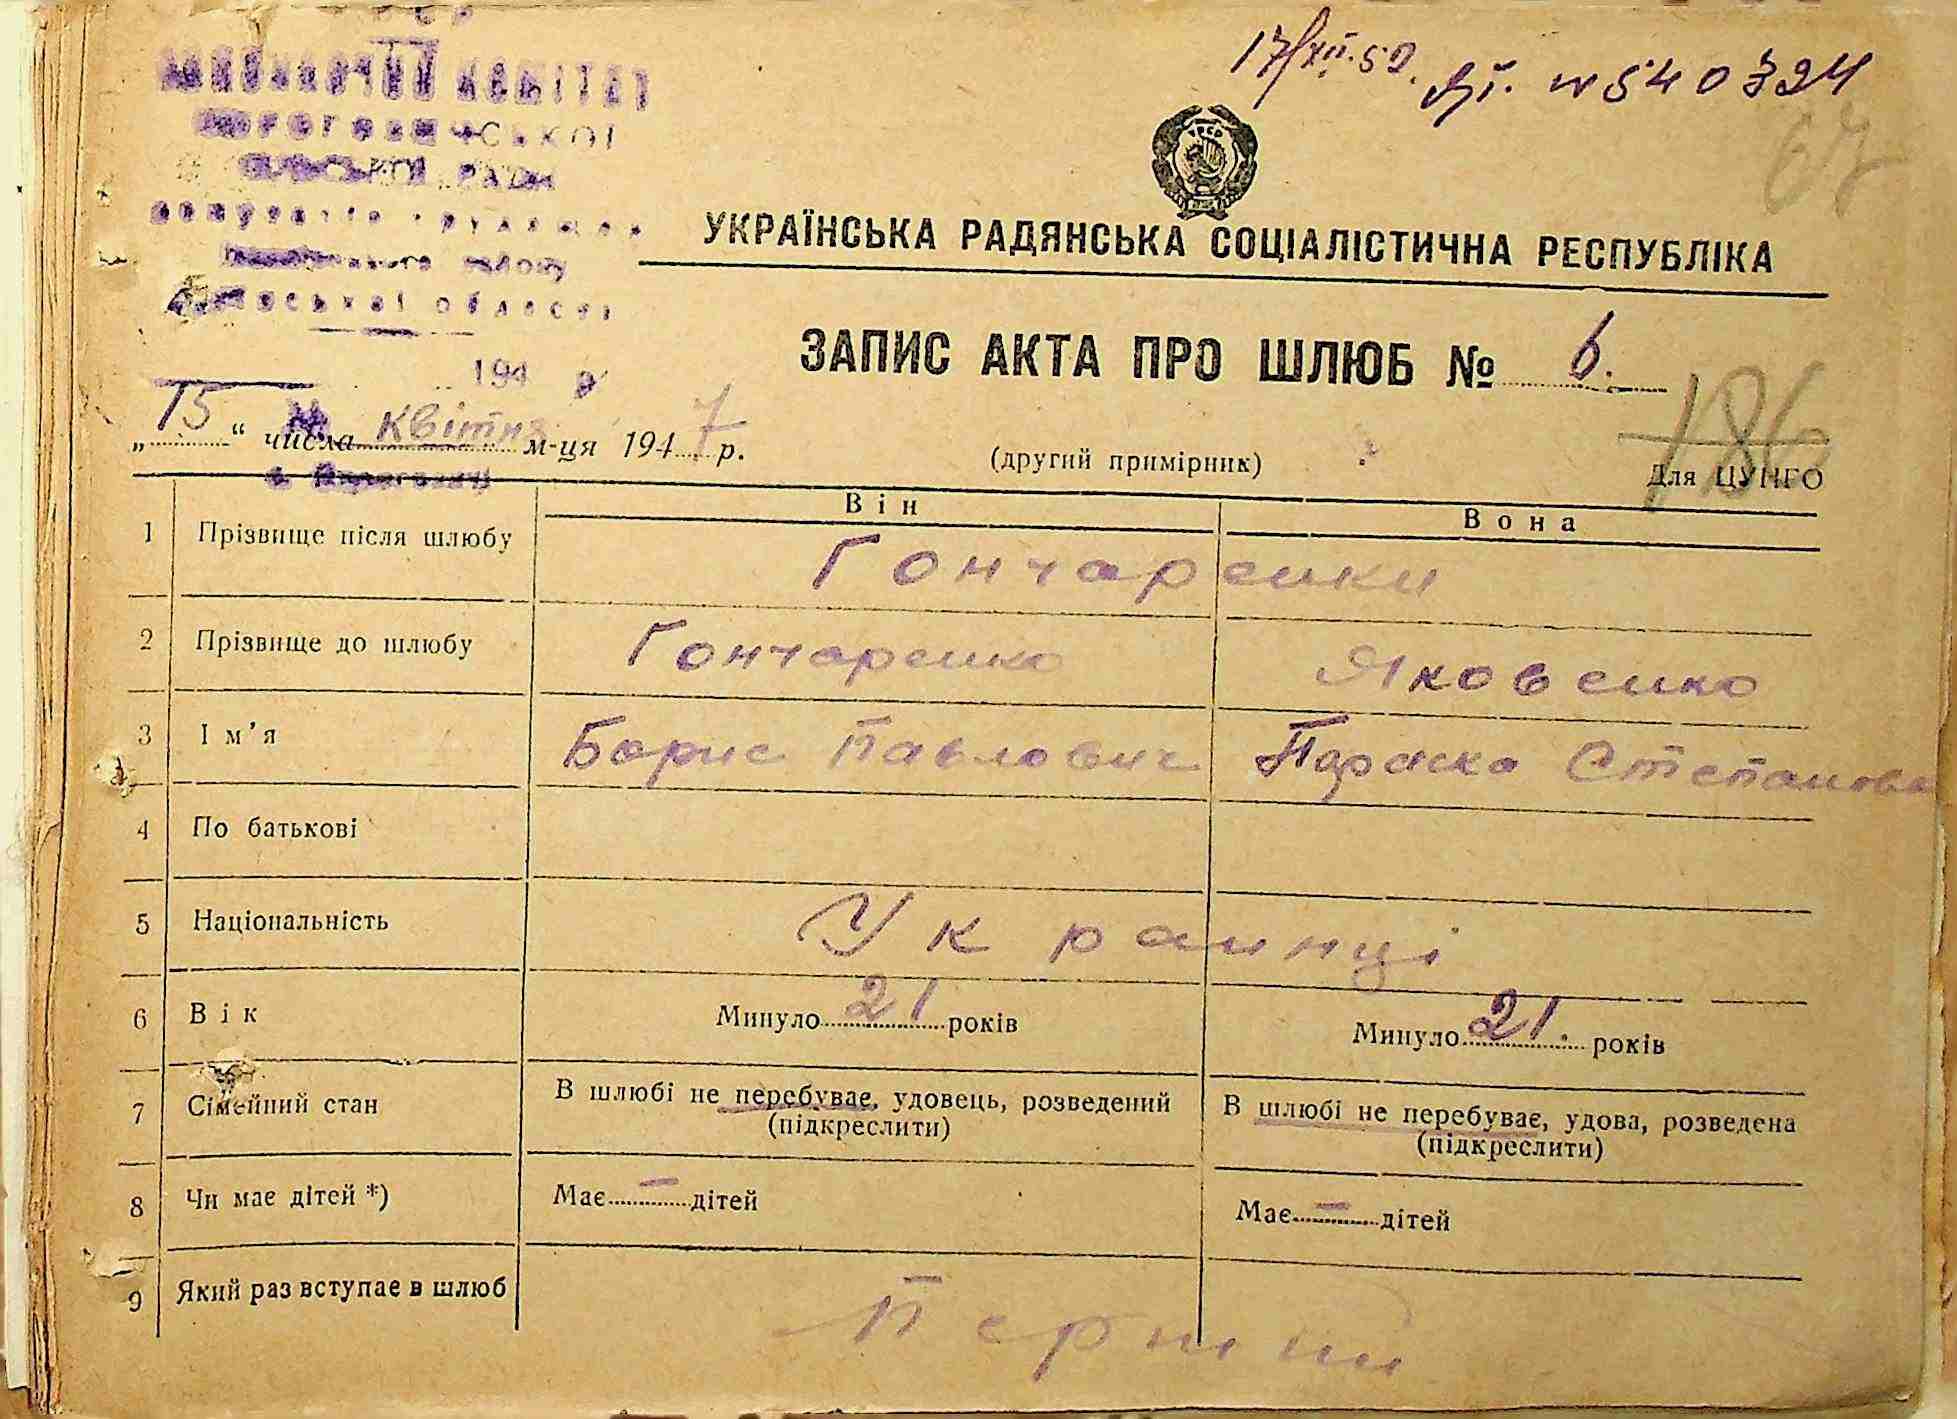 17/XII.50.
№ 540324
67
КОМІТЕТ
РАДИ
області
УРСР
УКРАЇНСЬКА РАДЯНСЬКА СОЦІАЛІСТИЧНА РЕСПУБЛІКА
ЗАПИС АКТА ПРО ШЛЮБ № 6.
194
„15“ числа квітня м-ця 1947 р.
(другий примірник)
186
Для ЦУНГО
Він
Вона
1 Прізвище після шлюбу Гончаренки
2 Прізвище до шлюбу Гончаренко Яковенко
3 Ім’я Борис Павлович Параска Степанова
4 По батькові
5 Національність Украинці
6 Вік Минуло 21 років Минуло 21. років
7 Сімейний стан В шлюбі не перебуває, удовець, розведений В шлюбі не перебуває, удова, розведена
(підкреслити) (підкреслити)
8 Чи має дітей *) Має — дітей Має — дітей
9 Який раз вступає в шлюб Перший